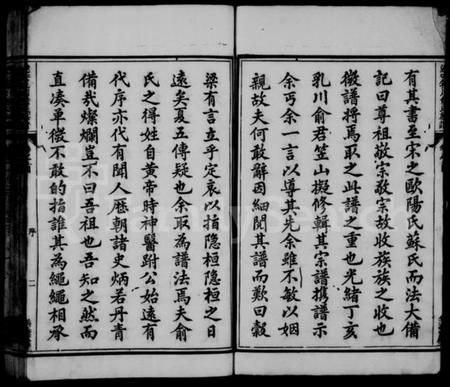 有其書至宋之歐陽氏蘇氏而法大備
記曰尊祖敬宗敬宗故收族族之收也
微譜將焉取之此譜之重也光緒丁亥
乳川俞君笠山擬修輯其宗譜携譜示
余丐余一言以導其先余雖不敏以姻
親故夫何敢辭因細閱其譜而歎曰穀
梁有言立乎定哀以指隱桓隱桓之日
遠矣夏五傳疑也余取為譜法焉夫俞
氏之得姓自黄帝時神醫跗公始遠有
代序亦代有聞人歷朝諸史炳若丹青
備哉燦爛豈不曰吾祖也吾知之然而
直凑單微不敢的指誰其為繩繩相承
序
二